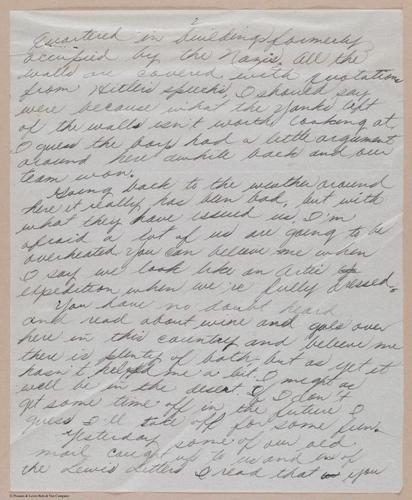 2
quartered in buildings formerly
occupied by the Nazis. All the
walls are covered with quotations
from Hitlers speechs, I should say
were because what the Yanks left
of the walls isn't worth looking at.
I guess the boys had a little argument
around here awhile back and our
team won.
Going back to the weather around
here it really has been bad, but with
what they have issued us, I'm
afraid a lot of us are going to be
overheated. You can believe me when
I say we look like an Artic
expedition when we're fully dressed.
You have no doubt heard
and read about wine and gals over
here in this country and believe me
there is plenty of both but as yet it
hasn't helped me a bit. I might as
well be in the desert. If I don't
get some time off in the future I
guess I'll take off for some fun.
Yesterday some of our old
mail caught up to us and in of
the Lewis Letters I read that you
© Pioneer & Lewis Bolt & Nut Company